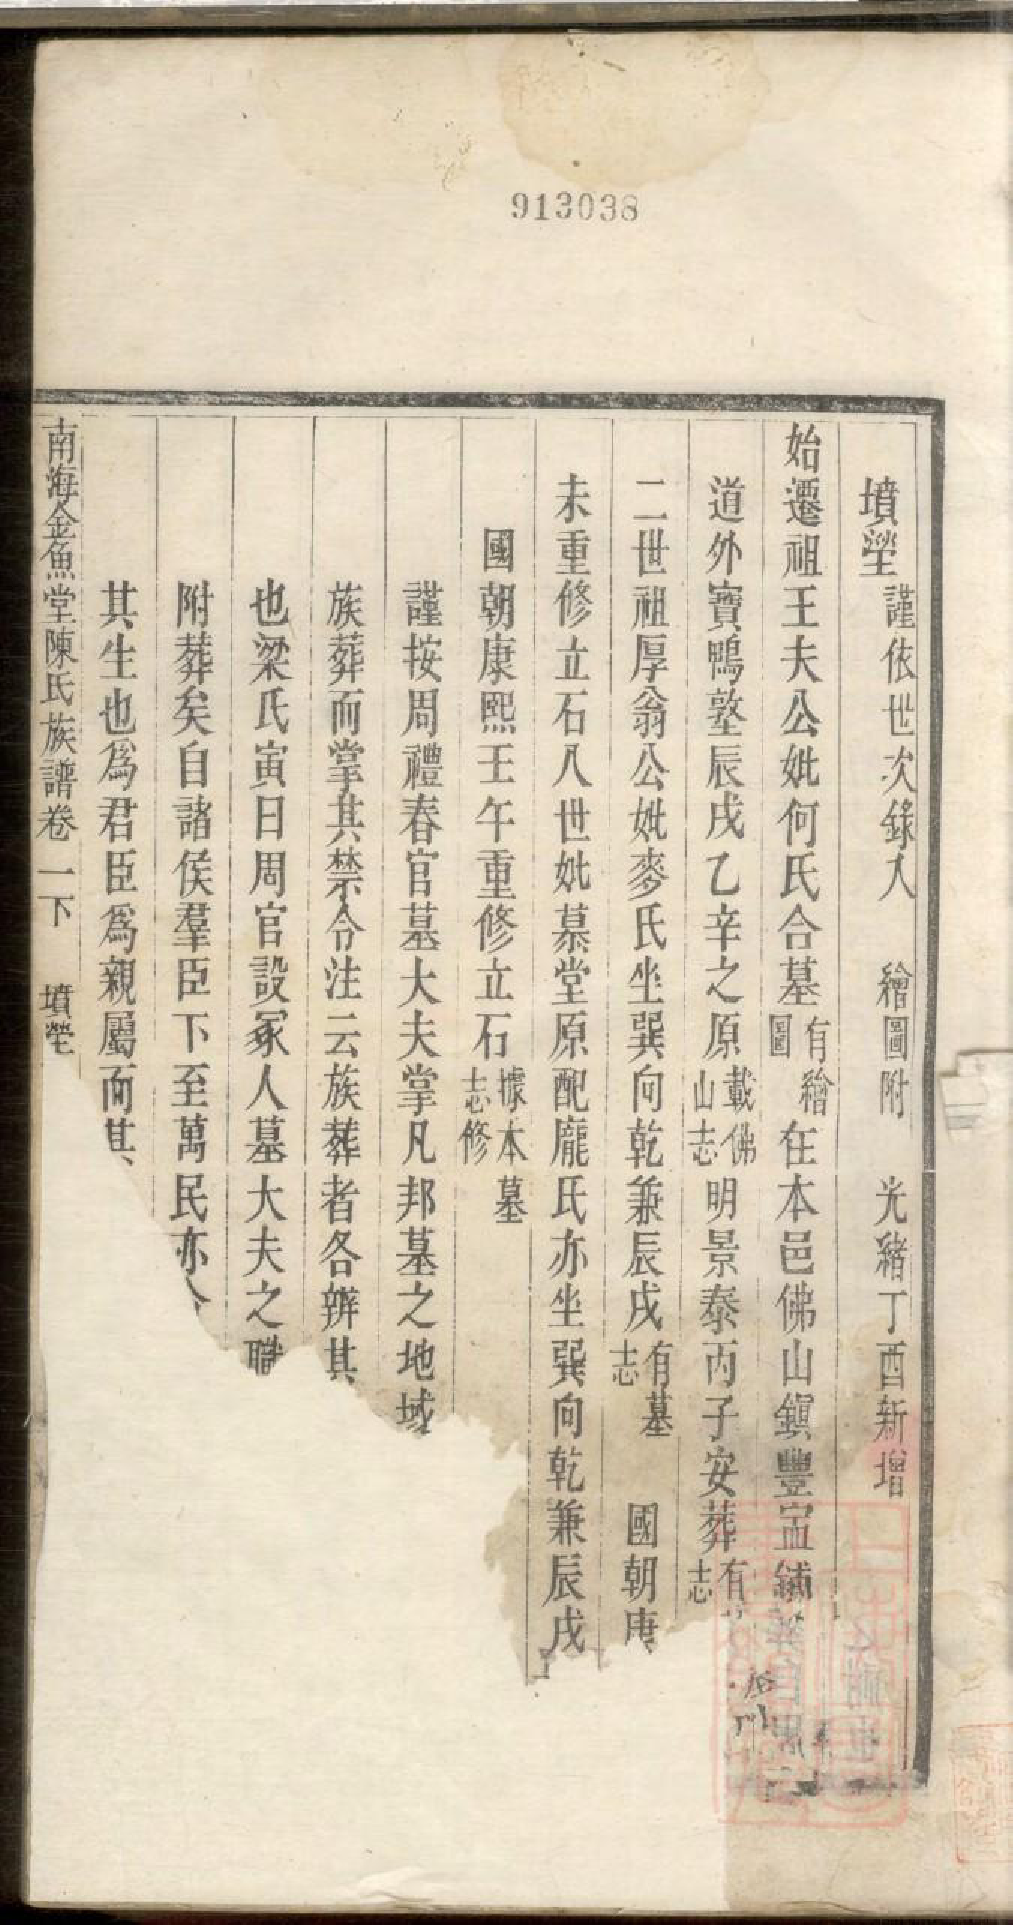 913038
墳塋 謹依世次錄入 繪圖附 光緒丁酉新增
始遷祖王夫公妣何氏合墓 有繪圖 在本邑佛山鎮豐寍鋪
道外寶鴨塾辰戌乙辛之原 載佛山志 明景泰丙子安葬 有志
二世祖厚翁公妣麥氏坐巽向乾兼辰戌 有墓志 國朝庚
未重修立石八世妣慕堂原配龐氏亦坐巽向乾兼辰戌
國朝康熙王午重修立石 據本墓志修
謹按周禮春官墓大夫掌凡邦墓之地域
族葬而掌其禁令注云族葬者各辨其
也梁氏寅曰周官設冢人墓大夫之職
附葬矣自諸侯羣臣下至萬民亦合
其生也爲君臣爲親屬而其
南海金魚堂陳氏族譜卷一下 墳塋